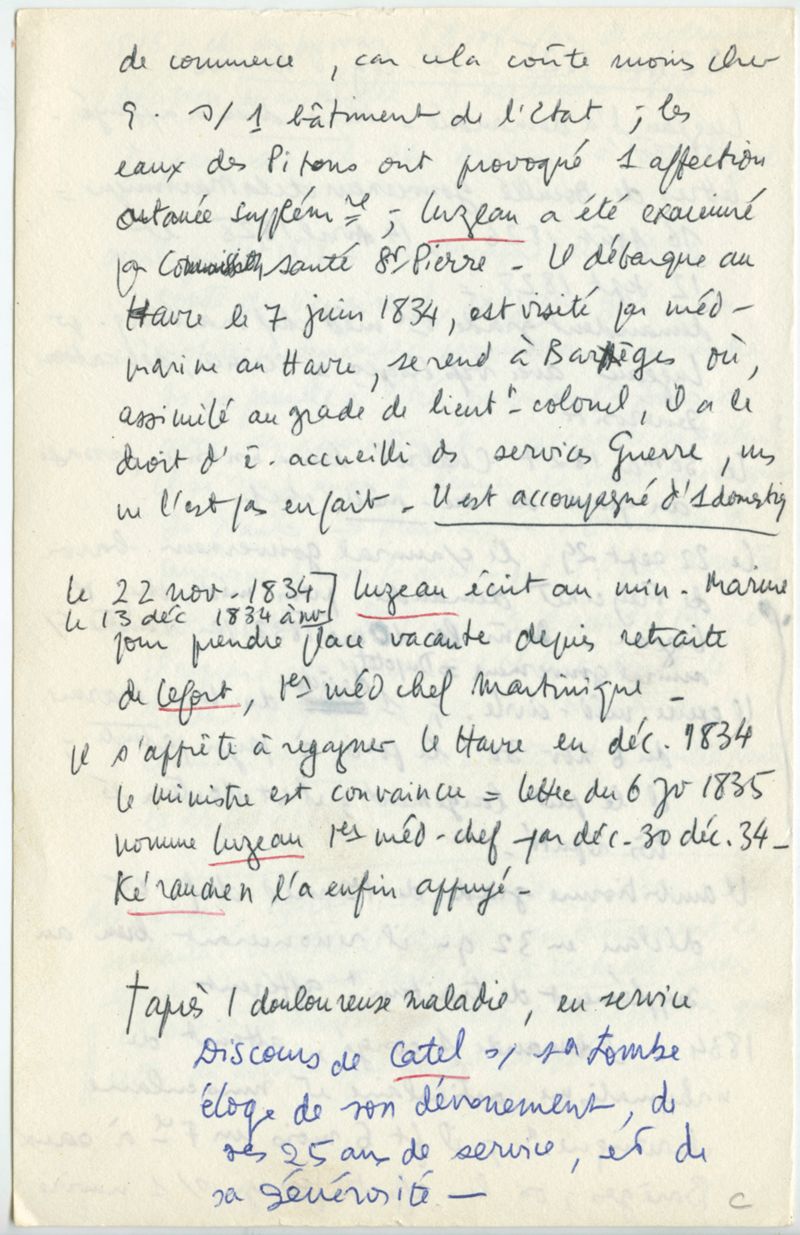 de commerce, car cela coûte moins cher
q. s/ 1 bâtiment de l'Etat ; les
eaux des Pitons ont provoqué 1 affection
cutanée supplém re ; Luzeau a été examiné
par santé St Pierre - Il débarque au
Havre le 7 juin 1834, est visité par méd -
marine au Havre, se rend à Barèges où,
assimilé au grade de lieut t - colonel, il a le
droit d'ê. accueilli ds services Guerre, ms
ne l'est pas en fait - Il est accompagné d'1 domestiq
le 22 nov. 1834 ] Luzeau écrit au min. Marine
le 13 déc 1834 à nv
pour prendre place vacante depuis retraite
de Lefort, 1er méd chef Martinique -
Il s'apprête à regagner le Havre en déc. 1834
le ministre est convaincu = lettre du 6 Jv 1835
nomme Luzeau 1er méd - chef par déc. 30 déc. 34 -
Kéraudren l'a enfin appuyé -
† après 1 douloureuse maladie, en service
Discours de Catel s/ sa tombe
éloge de son dévouement, de
ses 25 ans de service, et de
sa générosité -
C